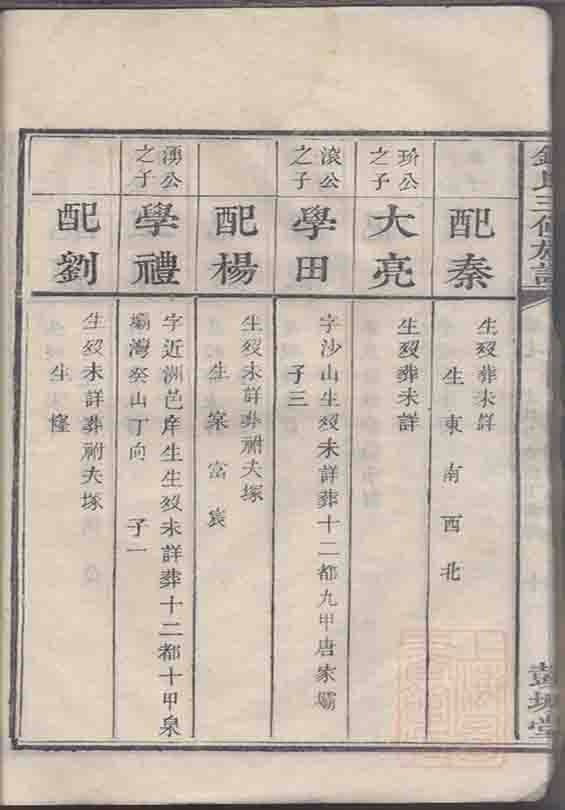 氏三修族譜
彭城堂
配秦
生歿葬未詳
生東南西北
玠公
之子
大亮
生歿葬未詳
滾公
之子
學田
字沙山生歿未詳葬十二都九甲唐家壩
子三
配楊
生歿未詳葬祔夫塚
生寀富賓
湧公
之子
學禮
字近洲邑庠生生歿未詳葬十二都十甲泉
壩灣癸山丁向 子一
配劉
生歿未詳葬祔夫塚
生隆